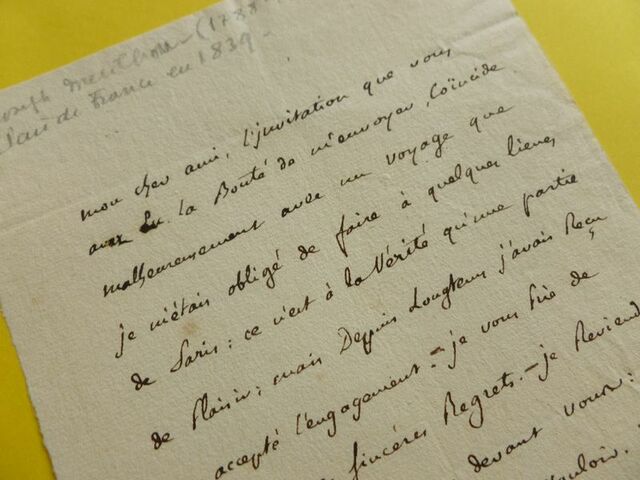 Joseph (1788
Pair de France en 1839.
mon cher ami, l'invitation que vous
avez Eu la Bonté de m'envoyer, Coïncide
malheureusement avec un voyage que
je m'étais obligé de faire à quelques lieues
de Paris: ce n'est à la Vérité qu'une partie
de Plaisir; mais Depuis Longtems j'avais Reçu
accepté l'engagement - je vous prie de
Sincères Regrets. - je Reviend
devant vous: